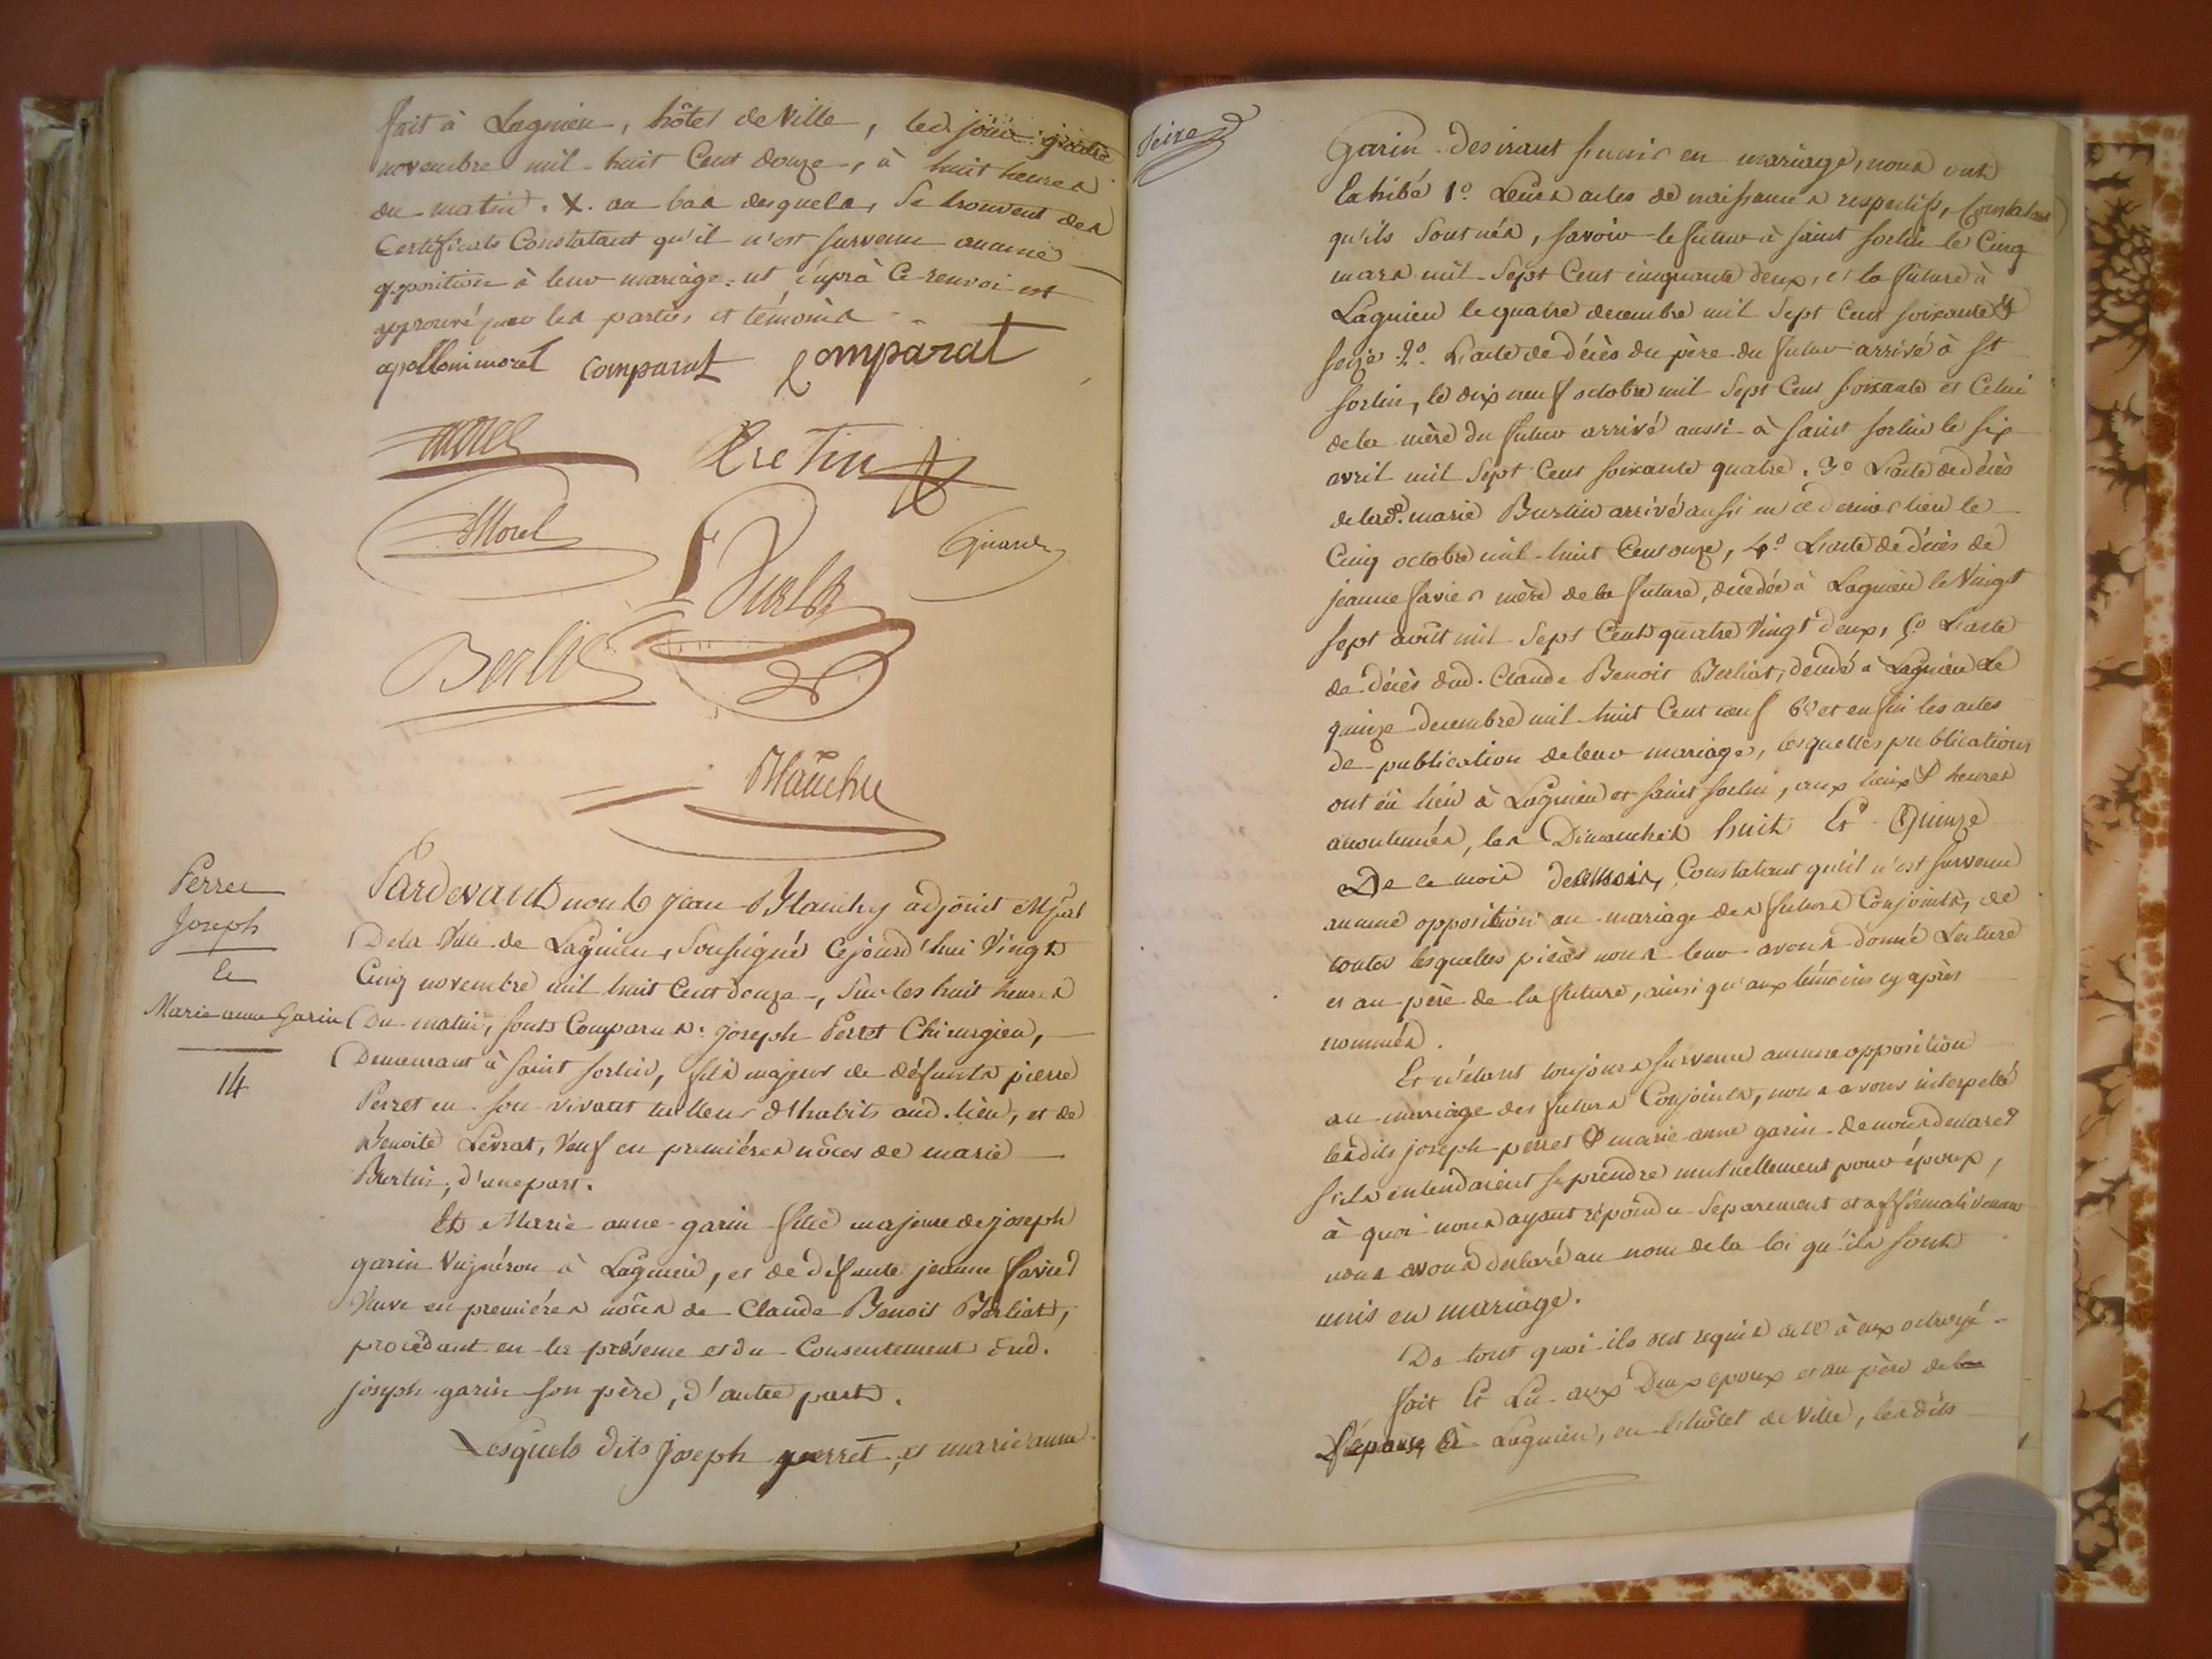 fait à Lagnieu, hôtel de Ville, led. jour quatre
novembre mil-huit Cent douze, à huit heures
du matin. X. au bas desquels, Se trouvent des
Certificats Constatant qu'il n'est survenu aucune
opposition à leur mariage. ut suprà Ce renvoi est
approuvé par les parties et témoins
apolloni morel comparat Comparat
Morel Cretin
Morel
Berlie
Blanchy
Perret
Joseph
&
Marie anne Garin
14
Pardevant nous Jean Blanchy adjoint Mpal
De la Ville de Lagnieu, Soussigné Cejourd'hui Vingt
Cinq novembre mil huit Cent douze, Sur les huit heures
Du matin, sont Comparus: Joseph Perret Chirurgien,
Demeurant à Saint Sorlin, fils majeur de défunts pierre
Perret en son vivant tailleur d'habits aud. lieu, et de
Benoite Levrat, Veuf en premières nôces de marie
Burtin, d'une part.
Et Marie anne garin fille majeure de joseph
garin Vigneron à Lagnieu, et de défunte jeanne Savier
Veuve en premières nôces de Claude Benoit Berliat,
procédant en la présence et du Consentement dud.
joseph garin son père, d'autre part.
Lesquels dits Joseph perret, et marie anne
Seize
Garin desirant s'unir en mariage, nous ont
Exhibé 1.º Leurs actes de naissance respectifs, Constatant
qu'ils Sont nés, savoir le futur à saint sorlin le Cinq
mars mil Sept Cent cinquante deux, et la future à
Lagnieu le quatre decembre mil Sept Cent soixante &
seize. 2.º L'acte de décès du père du futur arrivé à St
sorlin, le dix neuf octobre mil Sept Cent soixante et Celui
de la mère du futur arrivé aussi à saint sorlin le six
avril mil Sept Cent soixante quatre. 3.º L'acte de décès
de lad.e marie Burtin arrivé aussi en ce dernier lieu le
Cinq octobre mil huit Cent onze, 4.º L'acte de décès de
jeanne Savier mère de la future, decédée à Lagnieu le Vingt
sept août mil Sept Cent quatre Vingt deux, 5.º L'acte
de décès dud. Claude Benoit Berliat, decédé à Lagnieu le
quinze decembre mil huit Cent neuf 6.º et enfin les actes
de publication de leur mariage, lesquelles publications
ont eû lieu à Lagnieu et saint sorlin, aux lieux & heures
accoutumés, les Dimanches huit Et Quinze
De ce mois, Constatant qu'il n'est survenu
aucune opposition au mariage des futurs Conjoints, de
toutes lesquelles pièces nous leur avons donné Lecture
et au père de la future, ainsi qu'aux témoins cy après
nommés.
Et n'étant toujours survenu aucune opposition
au mariage des futurs Conjoints, nous avons interpellé
lesdits joseph perret & marie anne garin de nous declarer
s'ils entendaient se prendre mutuellement pour époux,
à quoi nous ayant répondu Separement et affirmativement
nous avons declaré au nom de la loi qu'ils sont
unis en mariage.
De tout quoi ils ont requis acte à eux octroyé.
fait Et Lu aux Deux epoux et au père de
L'épouse, à Lagnieu, en l'hôtel de Ville, lesdits